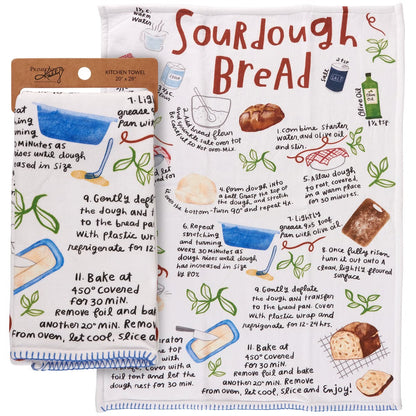 PRIMITIVES
Kathy
KITCHEN TOWEL
20" x 28"
7. Lightly
grease
Pan with
turning
minutes as
rises until dough
increased in size
9. Gently deflate
the dough and t
to the bread pan.
with plastic wra
refrigerate for 12-
11. Bake at
450° covered
for 30 min.
Remove foil and bak
another 20° min. Remove
from oven, let cool, slice a
SOURDOUGH
BREAD
1½ c.
warm
water
Salt
SALT
Olive Oil
1½ tsp
2. Add bread flour
and
Careful to Not over-mix.
1. Combine starter,
water, and olive oil
and stir.
4. Form dough into
a ball. Grasp the top of
the dough, and stretch
over the bottom. Turn 90° and repeat 4x.
5. Allow dough
to rest covered
in a warm place
for 30 minutes.
6. Repeat
stretching
and turning
every 30 minutes as
dough rises until dough
has increased in size
by 80%
7. Lightly
grease 9x5 loaf
Pan with olive oil
8. Once fully risen
turn it out onto a
clean, lightly floured
surface
9. Gently deflate
the dough and transfer
to the bread pan. Cover
with plastic wrap and
refrigerate for 12-24 hrs.
water on top
with a
foil tent and let the
dough rest for 30 min.
11. Bake at
450° covered
for 30 min.
Remove foil and bake
another 20° min. Remove
from oven, let cool, slice and Enjoy!